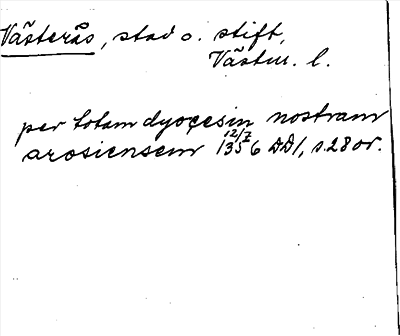 Västerås, stad o. stift,
Västm. l.
per totam dyocesin nostram
arosiensem 12/7 1356 DD1, s. 28 or.